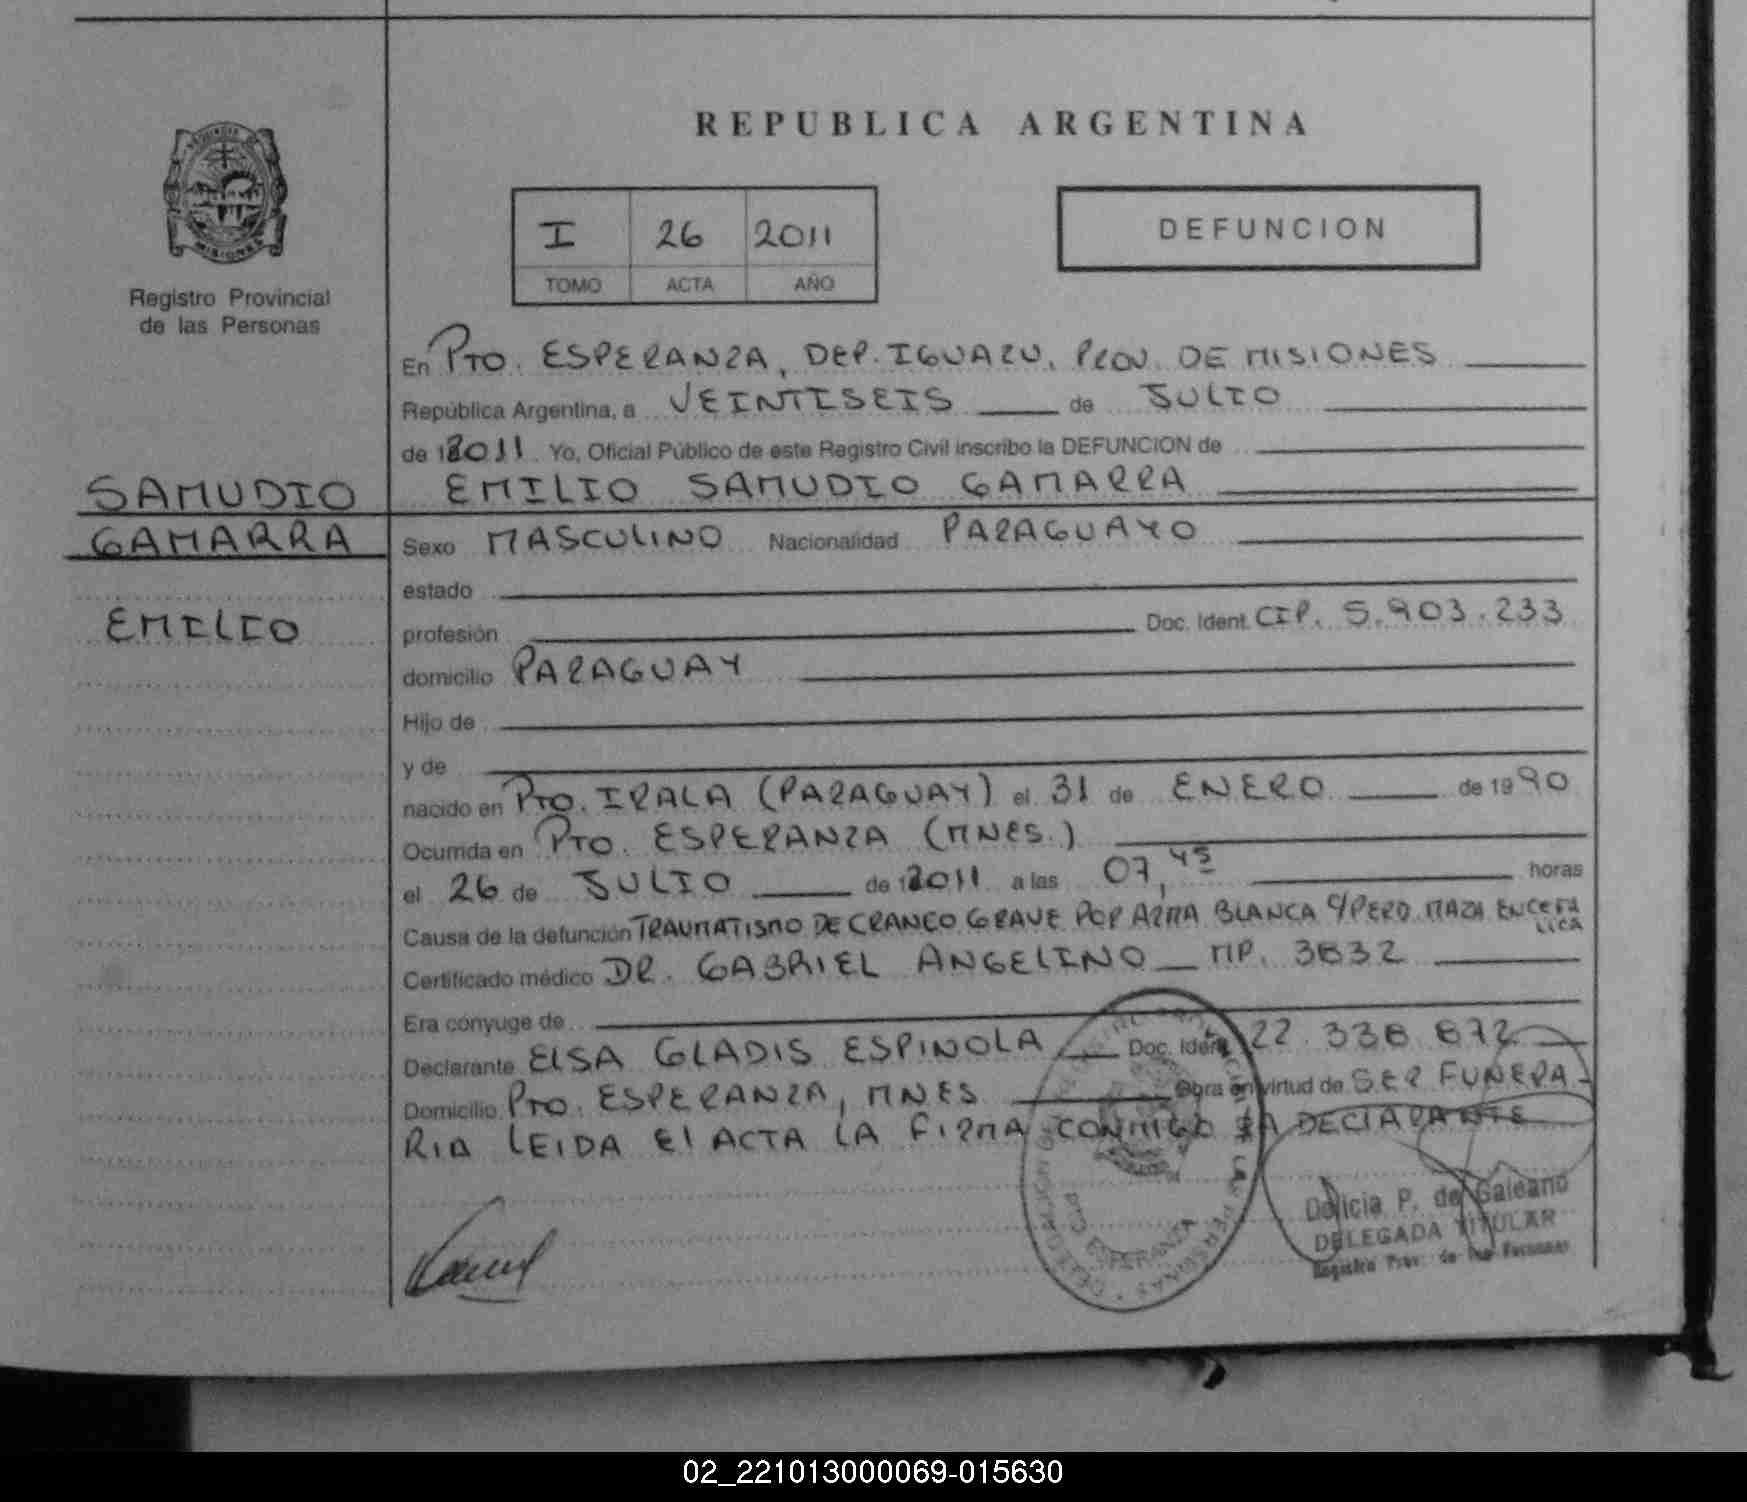 REPUBLICA ARGENTINA
I 26 2011
TOMO ACTA AÑO
DEFUNCION
PROVINCIA DE
MISIONES
Registro Provincial
de las Personas
SAMUDIO
GAMARRA
EMILIO
En PTO. ESPERANZA, DEP. IGUAZU, PROV. DE MISIONES
República Argentina, a VEINTISEIS de JULIO
de 2011 Yo, Oficial Público de este Registro Civil inscribo la DEFUNCION de
EMILIO SAMUDIO GAMARRA
Sexo MASCULINO Nacionalidad PARAGUAYO
estado
profesión Doc. Ident. CIP. 5.903.233
domicilio PARAGUAY
Hijo de
y de
nacido en PTO. IRALA (PARAGUAY) el 31 de ENERO de 1990
Ocurrida en PTO. ESPERANZA (MNES.)
el 26 de JULIO de 2011 a las 07,45 horas
Causa de la defunción TRAUMATISMO DE CRANEO GRAVE POR ARMA BLANCA C/PERD. MAZA ENCEFA
LICA
Certificado médico DR. GABRIEL ANGELINO MP. 3832
Era cónyuge de
Declarante ELSA GLADIS ESPINOLA Doc. Ident. 22.338.872
Domicilio PTO. ESPERANZA, MNES Obra en virtud de SER FUNERA-
RIA LEIDA El ACTA LA FIRMA CONMIGO LA DECLARANTE
PTO ESPERANZA
Delicia P. de Galeano
DELEGADA TITULAR
Registro Prov. de las Personas
02_221013000069-015630